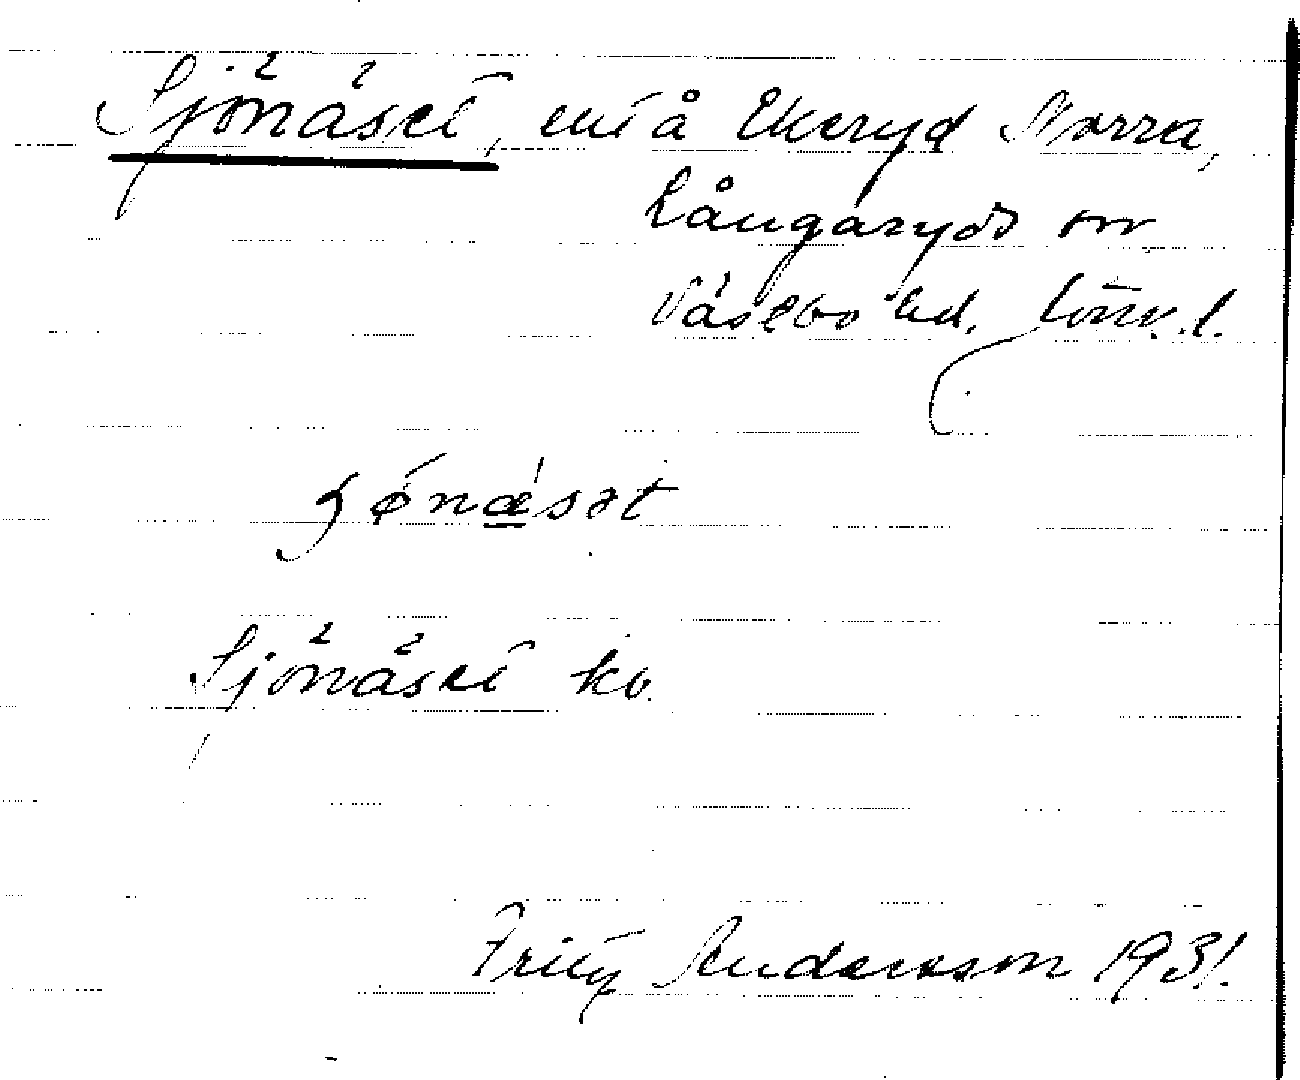 Sjönäset, ent å Ekeryd Norra,
Långaryds sn
Västbo hd. Jönk. l.
ʃönäsət
Sjönäset ko.
Fritz Andersson 1931.